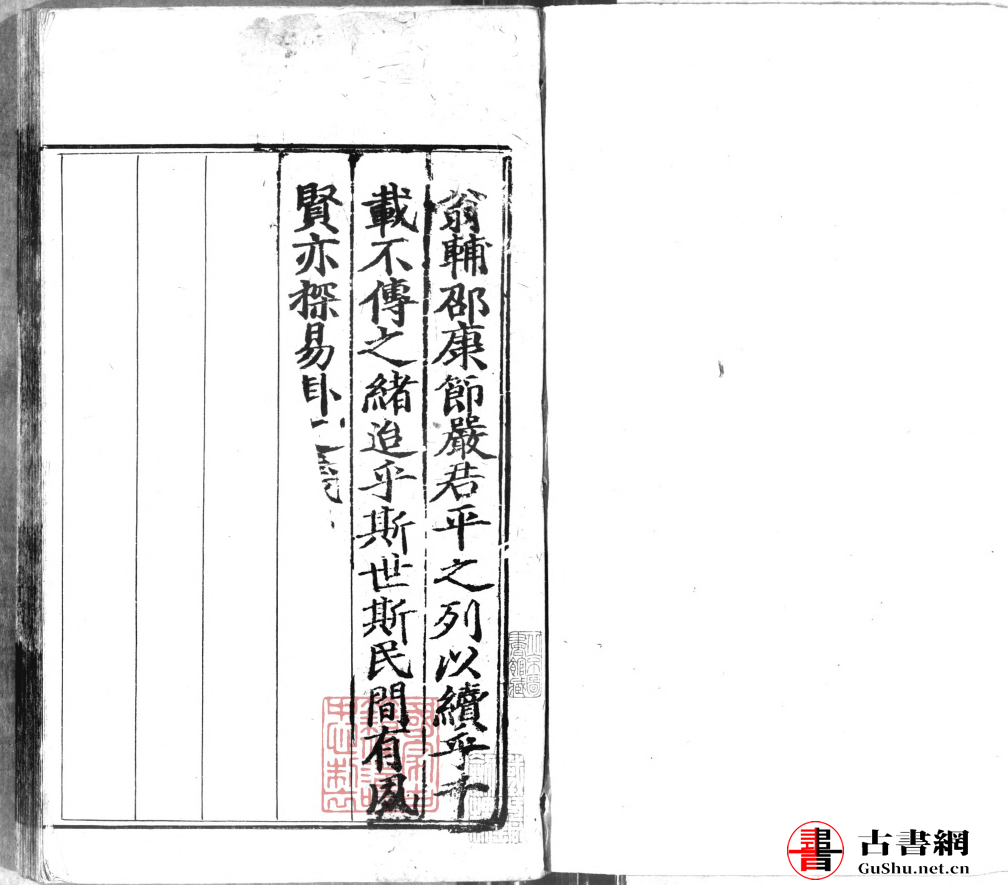 翁輔邵康節嚴君平之列以續乎千
載不傳之緒迨乎斯世斯民間有夙
賢亦探易卦之義
古書網
GuShu.net.cn